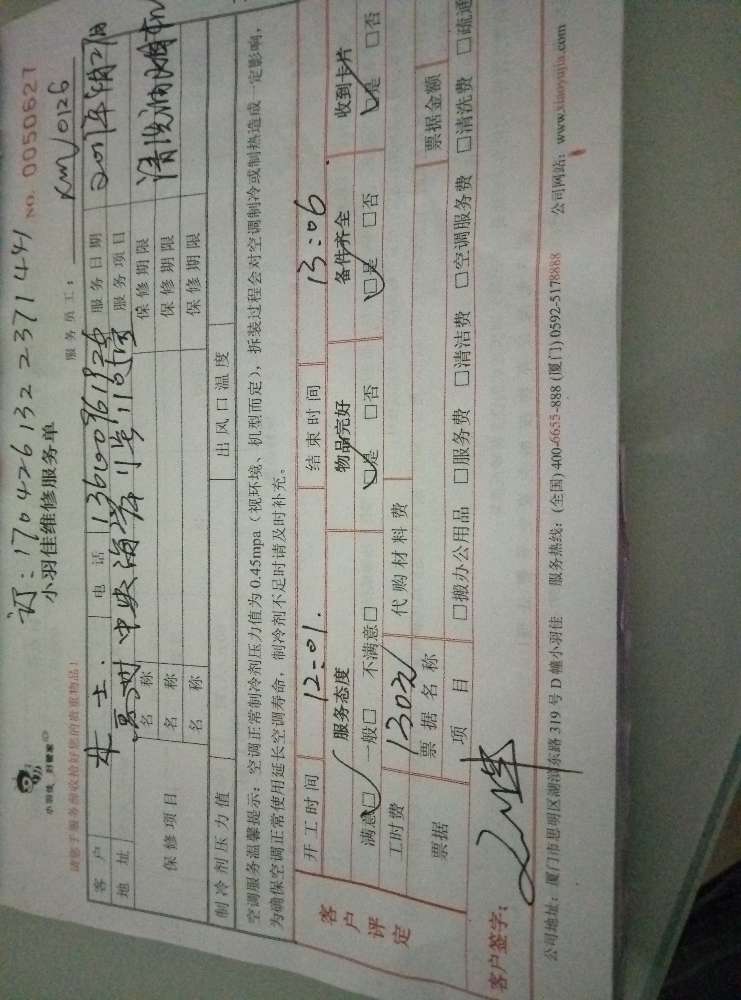 订:170426132 2371441
小羽佳 好管家
小羽佳维修服务单
NO. 0050627
请您于服务前收拾好您的贵重物品!
服务员工: KM/0126
客户 士. 电话 服务日期
地址 惠州 中央海岸 服务项目 清洗油烟机
保修项目
名称 保修期限
名称 保修期限
名称 保修期限
制冷剂压力值 出风口温度
空调服务温馨提示:空调正常制冷剂压力值为0.45mpa(视环境、机型而定),拆装过程会对空调制冷或制热造成一定影响,
为确保空调正常使用延长空调寿命,制冷剂不足时请及时补充。
客户评定
开工时间 12:01. 结束时间 13:06
服务态度 物品完好 备件齐全 收到卡片
满意□ 一般□ 不满意□ □是 □否 □是 □否 □是 □否
工时费 130元 代购材料费
票据 票据名称 票据金额
项目 □搬办公用品 □服务费 □清洁费 □空调服务费 □清洗费 □疏通
客户签字:
公司地址:厦门市思明区湖滨东路319号D幢小羽佳 服务热线:(全国)400-6655-888 (厦门)0592-5178888 公司网站:www.xiaoyujia.com